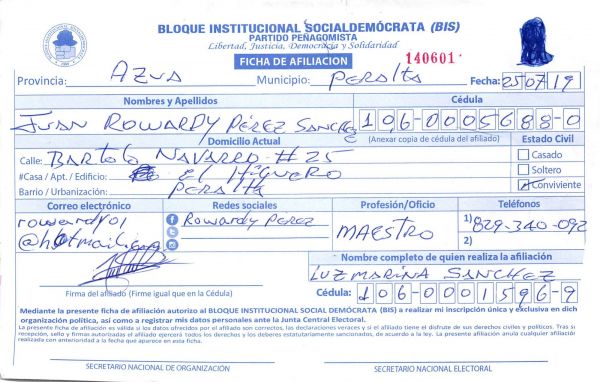 BLOQUE INSTITUCIONAL SOCIALDEMÓCRATA (BIS)
PARTIDO PEÑAGOMISTA
Libertad, Justicia, Democracia y Solidaridad
FICHA DE AFILIACION
140601
Provincia: AZUA Municipio: PERALTA Fecha: 25/07/19
Nombres y Apellidos Cédula
JUAN ROWARDY PÉREZ SANCHEZ 106-0005688-0
Domicilio Actual (Anexar copia de cédula del afiliado) Estado Civil
Calle: BARTOLO NAVARRO #25 Casado
#Casa / Apt. / Edificio: EL HIGUERO Soltero
Barrio / Urbanización: PERALTA Conviviente
Correo electrónico Redes sociales Profesión/Oficio Teléfonos
rowardy01 Rowardy Perez MAESTRO 1) 829-340-092
@hotmail.com 2)
Nombre completo de quien realiza la afiliación
LUZ MARINA SANCHEZ
Firma del afiliado (Firme igual que en la Cédula) Cédula: 106-0001596-9
Mediante la presente ficha de afiliación autorizo al BLOQUE INSTITUCIONAL SOCIAL DEMÓCRATA (BIS) a realizar mi inscripción única y exclusiva en dich
organización politica, así como a registrar mis datos personales ante la Junta Central Electoral.
La presente ficha de afiliación es válida si los datos ofrecidos por el afiliado son correctos, las declaraciones veraces y si el afiliado tiene el disfrute de sus derechos civiles y políticos. Tras s
recepción, sello y firmas autorizadas el afiliado ejercerá todos los derechos y los deberes estatutariamente sancionados, de acuerdo a la ley. La presente afiliación anula cualquier afiliación
realizada con anterioridad a la fecha que aparece en esta ficha.
SECRETARIO NACIONAL DE ORGANIZACIÓN SECRETARIO NACIONAL ELECTORAL